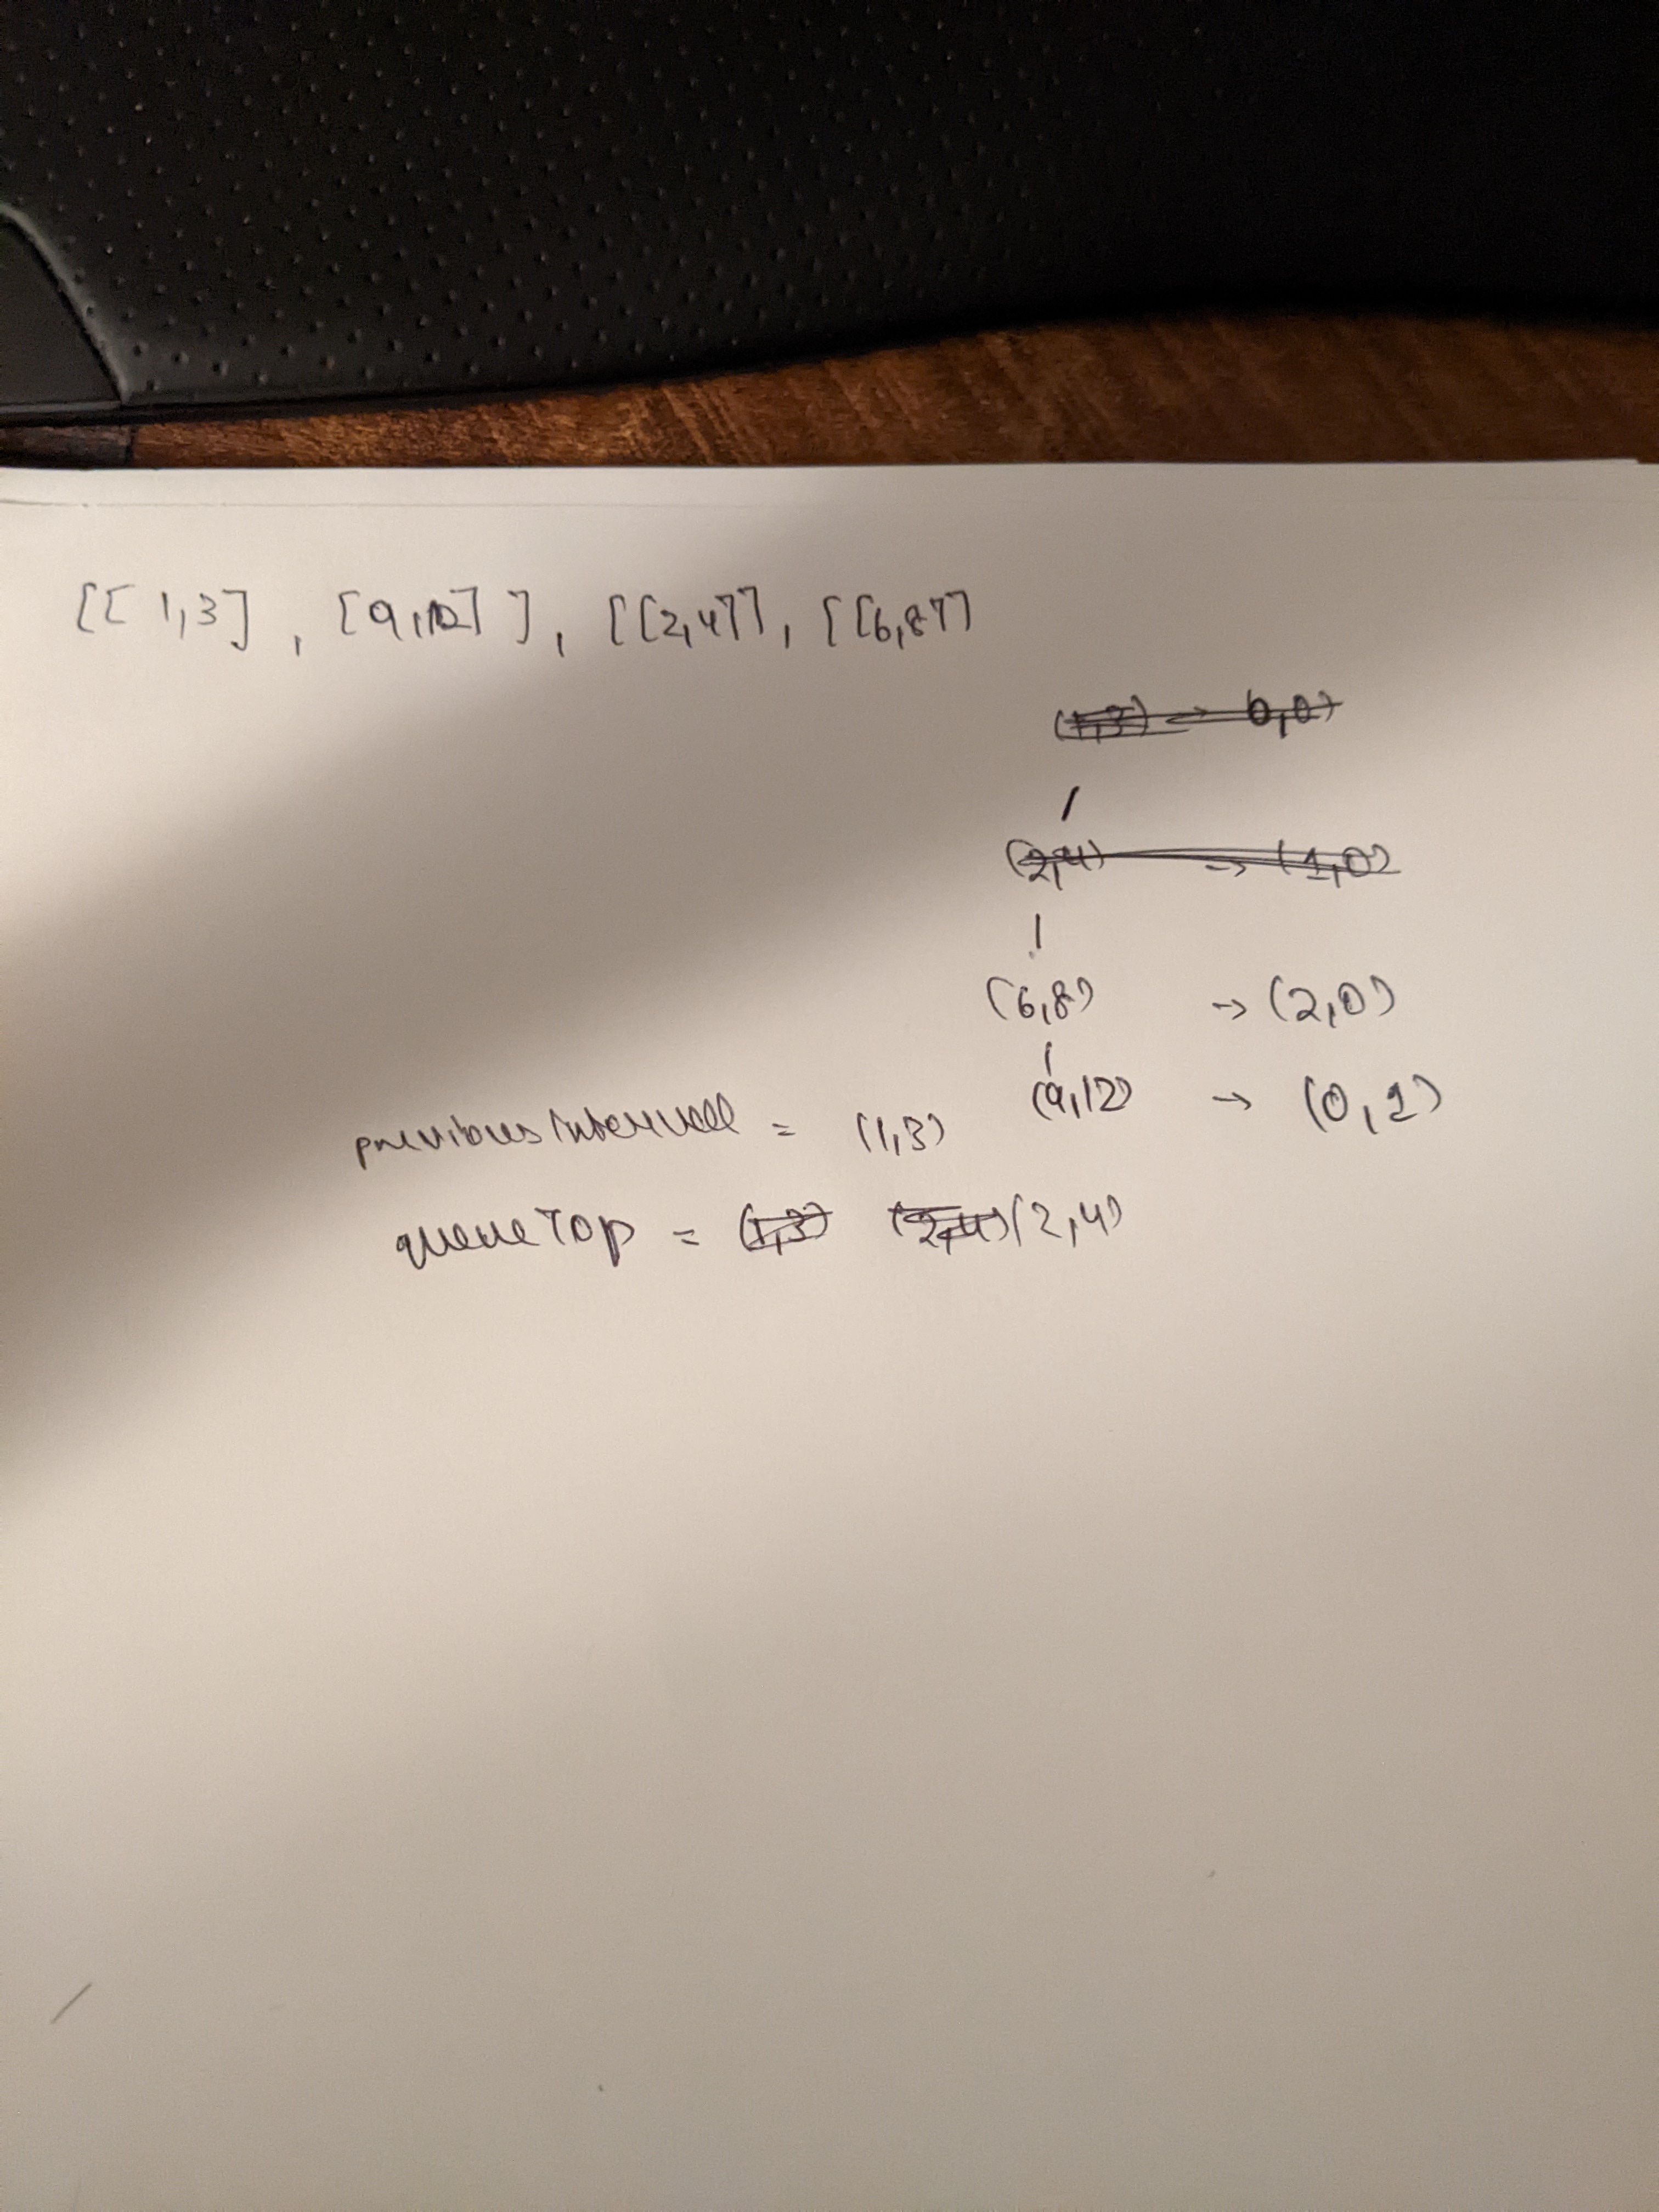 [[1,3], [9,12]], [[2,4]], [[6,8]]
(1,3) → 0,0)
(2,4) → (1,0)
(6,8) → (2,0)
(9,12) → (0,1)
previousIntervall = (1,3)
queueTop = (1,3) (2,4) (2,4)